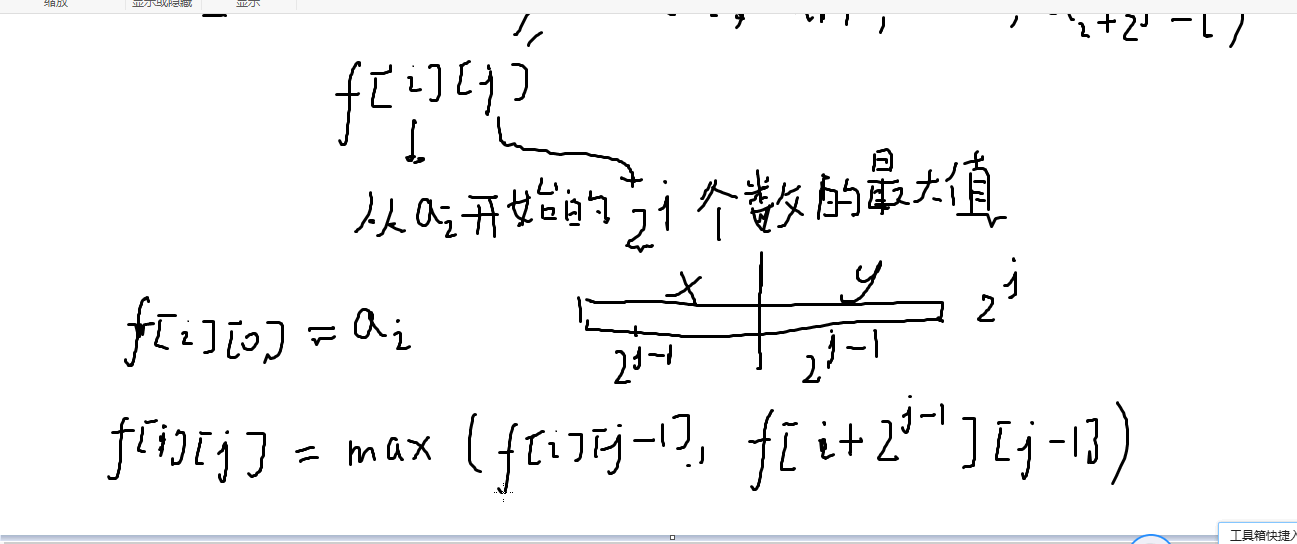 缩放 显示或隐藏 显示
a_{i+2^j-1})
f[i][j]
从a_i开始的2^j个数的最大值
x y 2^j
f[i][0] = a_i
2^{j-1} 2^{j-1}
f[i][j] = max (f[i][j-1], f[i+2^{j-1}][j-1])
工具箱快捷入